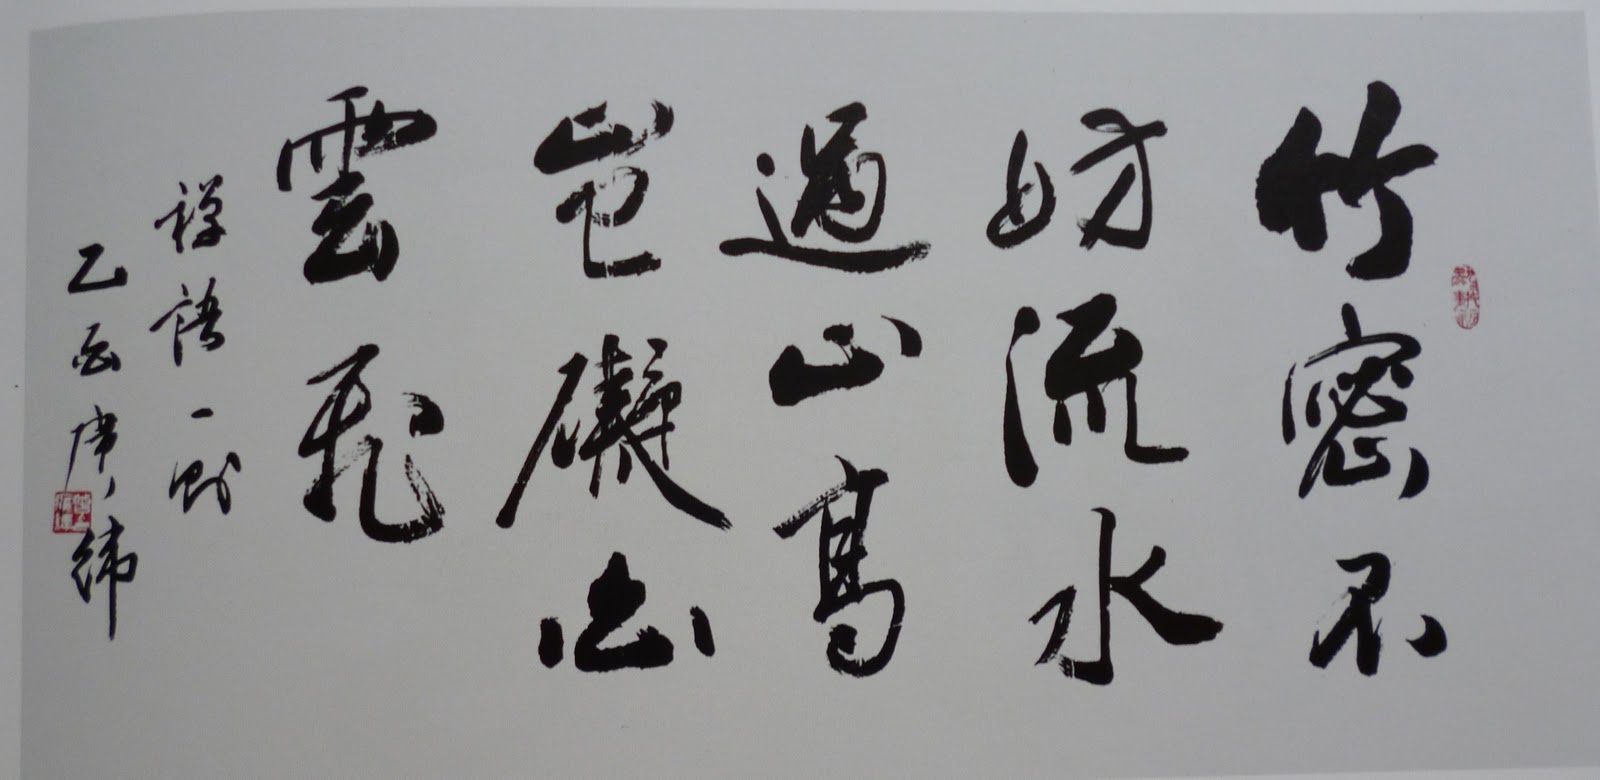 竹密不
妨流水
過山高
豈礙白
雲飛
禪語一則
乙酉 緯